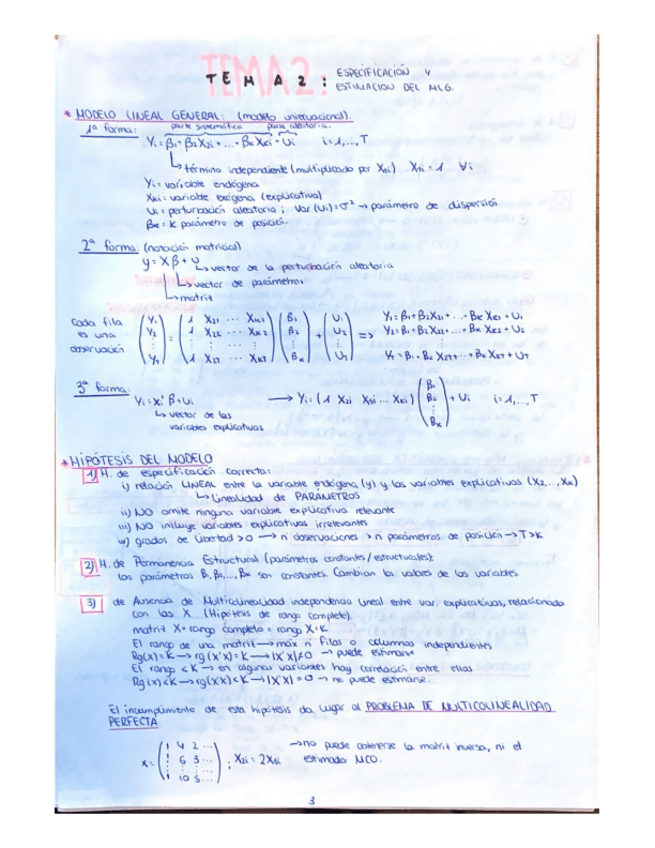 TEMA 2: ESPECIFICACIÓN Y
ESTIMACIÓN DEL MLG.
* MODELO LINEAL GENERAL: (modelo uniecuacional).
1ª forma: parte sistemática parte aleatoria.
Yi = β1 + β2X2i + ... + βkXki + Ui i=1,...,T
↳ término independiente (multiplicado por X1i) X1i = 1 ∀i
Yi = variable endógena
Xki = variable exógena (explicativa)
Ui = perturbación aleatoria; Var(Ui) = σ² → parámetro de dispersión
βk = K parámetro de posición.
2ª forma: (notación matricial)
y = Xβ + U
↳ vector de la perturbación aleatoria
↳ vector de parámetros
↳ matriz
Cada fila es una observación
(Y1 Y2 ⋮ YT) = (1 X21 ... Xk1 1 X22 ... Xk2 ⋮ 1 X2T ... XkT) (β1 β2 ⋮ βk) + (U1 U2 ⋮ UT) =>
Y1 = β1 + β2X21 + ... + βkXk1 + U1
Y2 = β1 + β2X22 + ... + βkXk2 + U2
YT = β1 + β2X2T + ... + βkXkT + UT
3ª forma:
Yi = xi' β + Ui → Yi = (1 X2i X3i ... Xki) (β1 β2 ⋮ βk) + Ui i=1,...,T
↳ vector de las
variables explicativas
* HIPÓTESIS DEL MODELO
1) H. de especificación correcta:
i) relación LINEAL entre la variable endógena (y) y las variables explicativas (X2,...,Xk)
↳ Linealidad de PARÁMETROS
ii) NO omite ninguna variable explicativa relevante
iii) NO incluye variables explicativas irrelevantes
iv) grados de libertad > 0 → nº observaciones > nº parámetros de posición → T > K
2) H. de Permanencia Estructural (parámetros constantes/estructurales):
los parámetros β1, β2,..., βk son constantes. Cambian los valores de las variables.
3) de Ausencia de Multicolinealidad independencia lineal entre var. explicativas, relacionado
con las X. (Hipótesis de rango completo).
matriz X = rango completo = rango X = K
El rango de una matriz → máx nº filas o columnas independientes
Rg(X) = K → rg(X'X) = K → |X'X| ≠ 0 → puede estimarse
El rango < K → en algunas variables hay correlación entre ellas
Rg(X) < K → rg(X'X) < K → |X'X| = 0 → no puede estimarse.
El incumplimiento de esta hipótesis da lugar al PROBLEMA DE MULTICOLINEALIDAD
PERFECTA
X = (1 4 2 ... 1 6 3 ... ⋮ 1 10 5 ...) ; X2i = 2X3i → no puede obtenerse la matriz inversa, ni el
estimador MCO.
3